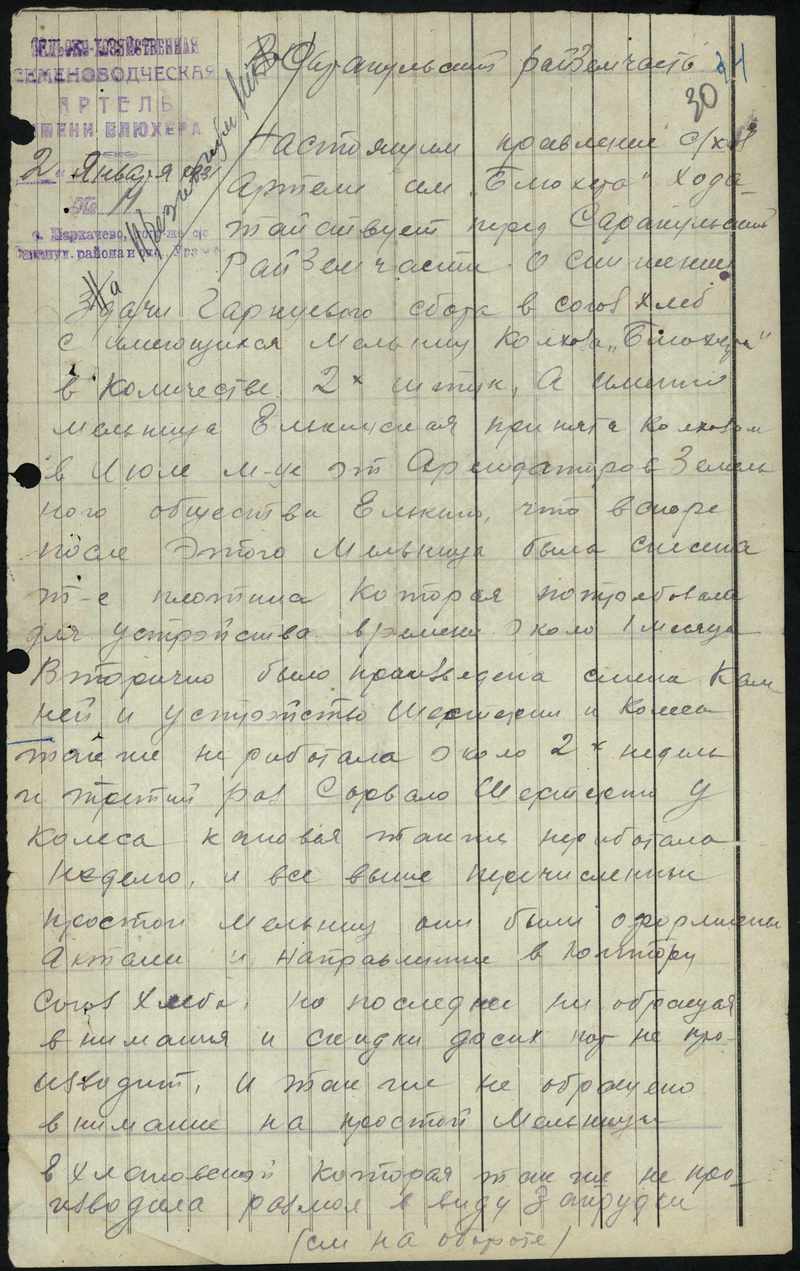 СЕЛЬСКО-ХОЗЯЙСТВЕННАЯ
СЕМЕНОВОДЧЕСКАЯ
АРТЕЛЬ
ИМЕНИ БЛЮХЕРА
2 Января
№ 11
В Сарапульский райземчасть
24
30
Настоящим правление с/хоз
Артели им „Блюхера" хода-
тайствует перед Сарапульской
РайЗемчастью О снижение
Здачи Гарнцевого сбора в союзхлеб
с имеющихся Мельниц Колхоза „Блюхера"
в Количестве 2х штук, А именно
мельница Елькинская принята колхозом
в Июле м-це от Арендаторов Земель
ного общества Елькино, что вскоре
после Этого Мельница была снесена
т-е плотина Которая потребовала
для устройства времени около 1 месяца
Вторично было произведена смена Кам
ней и устройство Шестерни и Колеса
также не работала около 2х недель
и третий раз Сорвало Шестерни у
колеса каковая также неработала
неделю, и все выше перечисленные
простои мельниц они были оформлены
Актами и направлены в контору
Союз Хлеба, но последнее не обращая
внимания и скидки досих пор не про-
изводит, и также не обращено
внимание на простой Мельницы
в которая также не про-
изводила размол в виду Запрудки
(см на обороте)